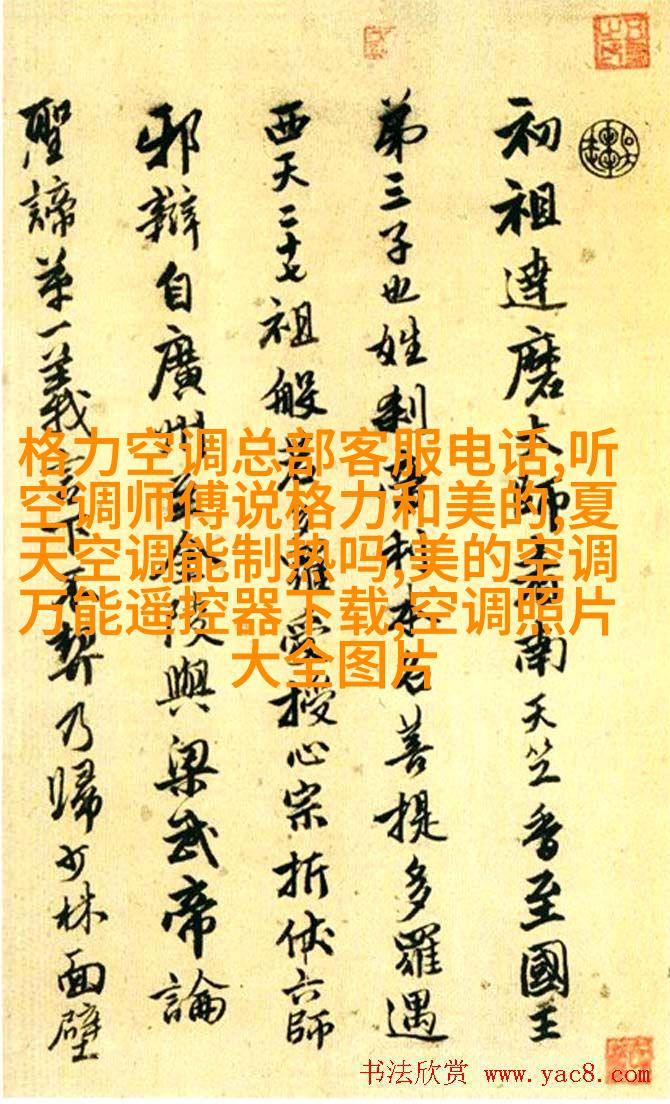 初祖達磨大師者南天竺香至國王
第三子也姓刹帝利本名菩提多羅遇
西天二十七祖般若多羅受授心宗折伏六師
邪辯自廣州至金陵與梁武帝論
聖諦第一義言下不契乃歸少林面壁
格力空调总部客服电话,听
空调师傅说格力和美的,夏
天空调能制热吗,美的空调
万能遥控器下载,空调照片
大全图片
书法欣赏 www.yac8.com